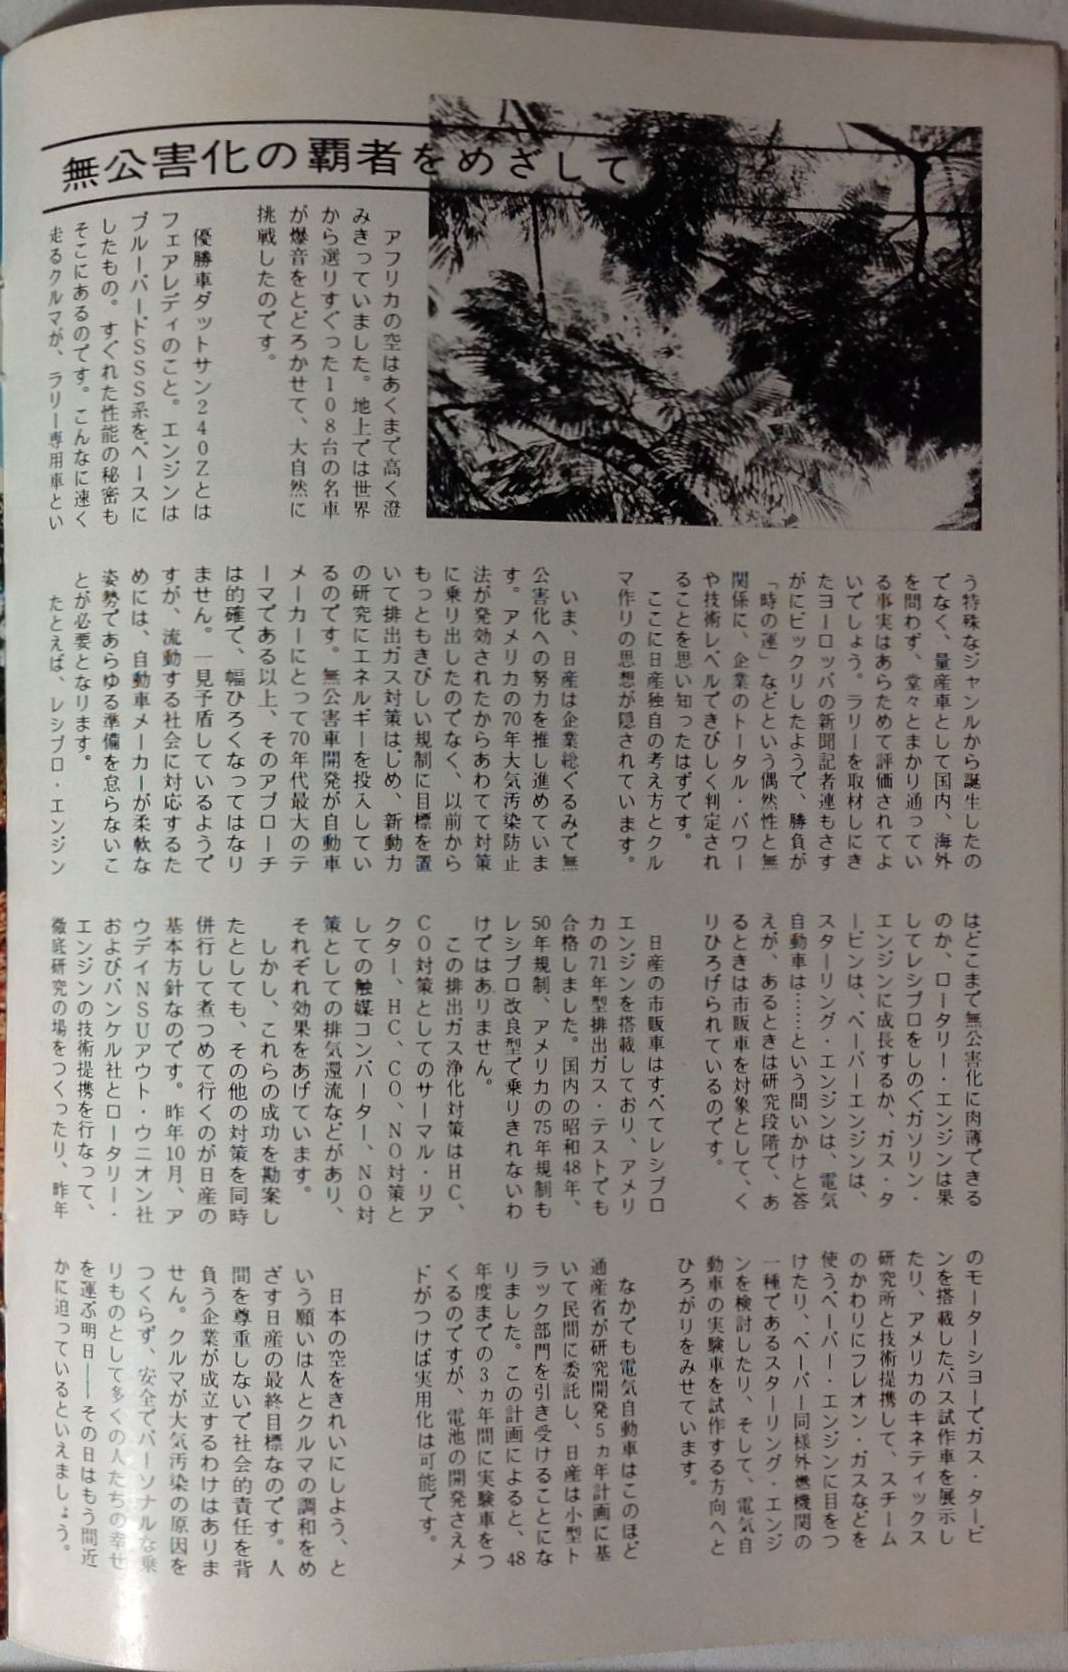 無公害化の覇者をめざして
アフリカの空はあくまで高く澄
みきっていました。地上では世界
から選りすぐった108台の名車
が爆音をとどろかせて、大自然に
挑戦したのです。
優勝車ダットサン240Zとは
フェアレディのこと。エンジンは
ブルーバードSSS系をベースに
したもの。すぐれた性能の秘密も
そこにあるのです。こんなに速く
走るクルマが、ラリー専用車とい
う特殊なジャンルから誕生したの
でなく、量産車として国内、海外
を問わず、堂々とまかり通ってい
る事実はあらためて評価されてよ
いでしょう。ラリーを取材しにき
たヨーロッパの新聞記者連もさす
がにビックリしたようで、勝負が
「時の運」などという偶然性と無
関係に、企業のトータル・パワー
や技術レベルできびしく判定され
ることを思い知ったはずです。
ここに日産独自の考え方とクル
マ作りの思想が隠されています。
いま、日産は企業総ぐるみで無
公害化への努力を推し進めていま
す。アメリカの70年大気汚染防止
法が発効されたからあわてて対策
に乗り出したのでなく、以前から
もっともきびしい規制に目標を置
いて排出ガス対策はじめ、新動力
の研究にエネルギーを投入してい
るのです。無公害車開発が自動車
メーカーにとって70年代最大のテ
ーマである以上、そのアプローチ
は的確で、幅ひろくなってはなり
ません。一見予盾しているようで
すが、流動する社会に対応するた
めには、自動車メーカーが柔軟な
姿勢であらゆる準備を怠らないこ
とが必要となります。
たとえば、レシプロ・エンジン
はどこまで無公害化に肉薄できる
のか、ロータリー・エンジンは果
してレシプロをしのぐガソリン・
エンジンに成長するか、ガス・タ
ービンは、ベーパーエンジンは、
スターリング・エンジンは、電気
自動車は……という問いかけと答
えが、あるときは研究段階で、あ
るときは市販車を対象として、く
りひろげられているのです。
日産の市販車はすべてレシプロ
エンジンを搭載しており、アメリ
カの71年型排出ガス・テストでも
合格しました。国内の昭和48年、
50年規制、アメリカの75年規制も
レシプロ改良型で乗りきれないわ
けではありません。
この排出ガス浄化対策はHC、
CO対策としてのサーマル・リア
クター、HC、CO、NO対策と
しての触媒コンバーター、NO対
策としての排気還流などがあり、
それぞれ効果をあげています。
しかし、これらの成功を勘案し
たとしても、その他の対策を同時
併行して煮つめて行くのが日産の
基本方針なのです。昨年10月、ア
ウディNSUアウト・ウニオン社
およびバンケル社とロータリー・
エンジンの技術提携を行なって、
徹底研究の場をつくったり、昨年
のモーターショーでガス・タービ
ンを搭載したバス試作車を展示し
たり、アメリカのキネティックス
研究所と技術提携して、スチーム
のかわりにフレオン・ガスなどを
使うベーパー・エンジンに目をつ
けたり、ベーパー同様外燃機関の
一種であるスターリング・エンジ
ンを検討したり、そして、電気自
動車の実験車を試作する方向へと
ひろがりをみせています。
なかでも電気自動車はこのほど
通産省が研究開発5ヵ年計画に基
いて民間に委託し、日産は小型ト
ラック部門を引き受けることにな
りました。この計画によると、48
年度までの3ヵ年間に実験車をつ
くるのですが、電池の開発さえメ
ドがつけば実用化は可能です。
日本の空をきれいにしよう、と
いう願いは人とクルマの調和をめ
ざす日産の最終目標なのです。人
間を尊重しないで社会的責任を背
負う企業が成立するわけはありま
せん。クルマが大気汚染の原因を
つくらず、安全でパーソナルな乗
りものとして多くの人たちの幸せ
を運ぶ明日──その日はもう間近
かに迫っているといえましょう。